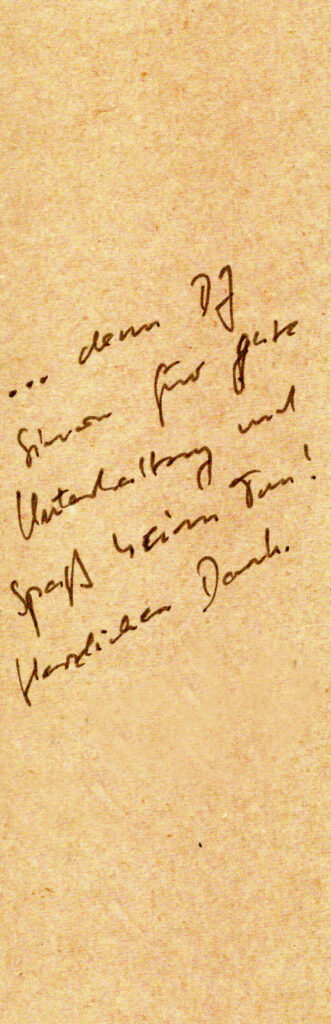 ... denn DJ
Simon für gute
Unterhaltung und
Spaß beim Tun!
Herzlichen Dank.